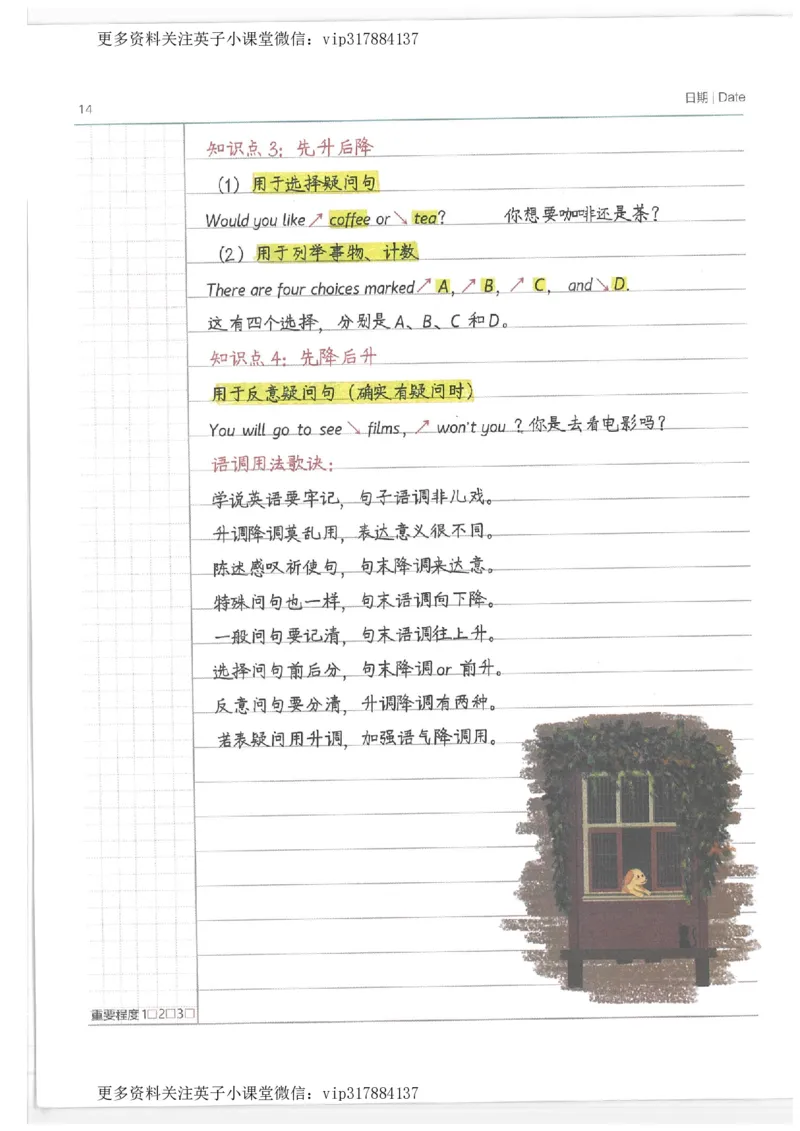 更多资料关注英子小课堂微信：vip317884137
14
日期 | Date
知识点3：先升后降
（1）用于选择疑问句
Would you like↗coffee or↘tea? 你想要咖啡还是茶？
（2）用于列举事物、计数
There are four choices marked↗A,↗B,↗C, and↘D.
这有四个选择，分别是A、B、C和D。
知识点4：先降后升
用于反意疑问句（确实有疑问时）
You will go to see↘films,↗won't you？你是去看电影吗？
语调用法歌诀：
学说英语要牢记，句子语调非儿戏。
升调降调莫乱用，表达意义很不同。
陈述感叹祈使句，句末降调来达意。
特殊问句也一样，句末语调向下降。
一般问句要记清，句末语调往上升。
选择问句前后分，句末降调or前升。
反意问句要分清，升调降调有两种。
若表疑问用升调，加强语气降调用。
重要程度1□2□3□
更多资料关注英子小课堂微信：vip317884137